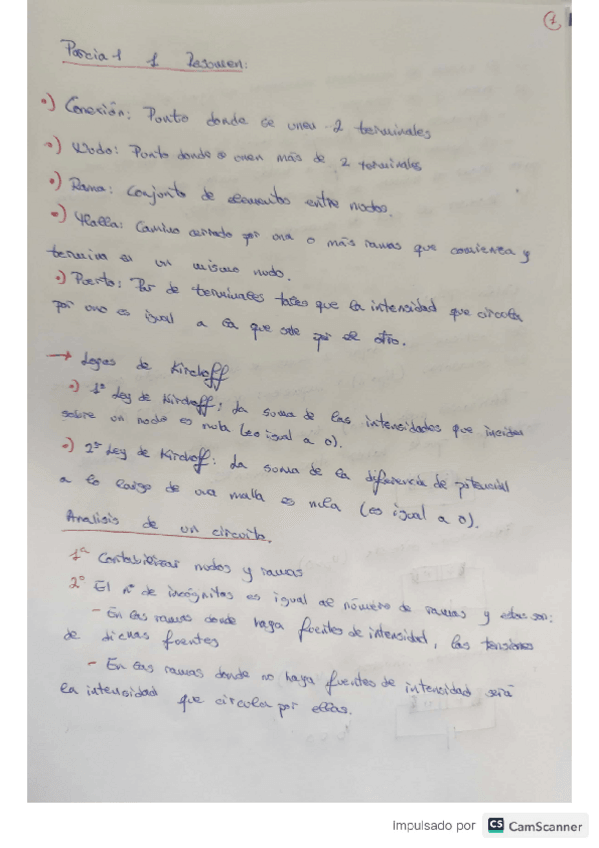 1
Parcial 1 Resumen:
•) Conexión: Punto donde se unen 2 terminales
•) Nodo: Punto donde se unen más de 2 terminales
•) Rama: Conjunto de elementos entre nodos.
•) Malla: Camino cerrado por una o más ramas que comienza y
termina en un mismo nudo.
•) Puerto: Par de terminales tales que la intensidad que circula
por uno es igual a la que sale por el otro.
→ Leyes de Kirchoff
•) 1ª Ley de Kirchoff: La suma de las intensidades que inciden
sobre un nodo es nula (es igual a 0).
•) 2ª Ley de Kirchoff: La suma de la diferencia de potencial
a lo largo de una malla es nula (es igual a 0).
Analisis de un circuito.
1º Contabilizar nodos y ramas
2º El nº de incógnitas es igual al número de ramas y estas son:
- En las ramas donde haya fuentes de intensidad, las tensiones
de dichas fuentes
- En las ramas donde no haya fuentes de intencidad será
la intensidad que circula por ellas.
Impulsado por CS CamScanner